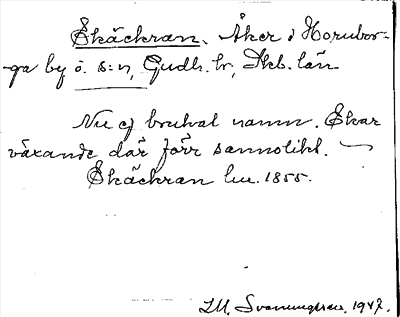 Ekäckran. Åker i Horubor-
ga by ö. s:n, Gudh. hr, Skb. län
Nu ej brukat namn. Ekar
växande där förr sannolikt.
Ekäckran lm. 1855.
I.M. Svenungsson. 1947.